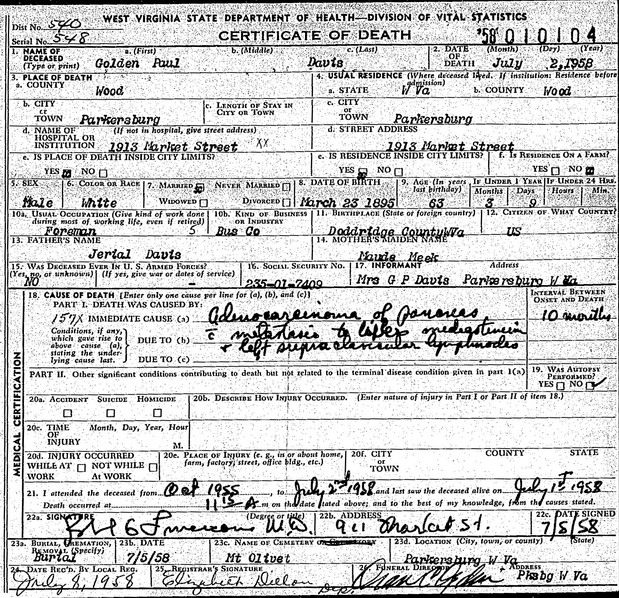 WEST VIRGINIA STATE DEPARTMENT OF HEALTH—DIVISION OF VITAL STATISTICS
Dist No. 540
Serial No. 548
CERTIFICATE OF DEATH
'58 010104
1. NAME OF DECEASED (Type or print) a. (First) b. (Middle) c. (Last) 2. DATE OF DEATH (Month) (Day) (Year)
Golden Paul Davis July 2, 1958
3. PLACE OF DEATH 4. USUAL RESIDENCE (Where deceased lived. If institution: Residence before admission)
a. COUNTY Wood a. STATE W Va b. COUNTY Wood
b. CITY or TOWN Parkersburg c. LENGTH OF STAY IN CITY OR TOWN c. CITY or TOWN Parkersburg
d. NAME OF HOSPITAL OR INSTITUTION (If not in hospital, give street address) 1913 Market Street XX d. STREET ADDRESS 1913 Market Street
e. IS PLACE OF DEATH INSIDE CITY LIMITS? e. IS RESIDENCE INSIDE CITY LIMITS? f. IS RESIDENCE ON A FARM?
YES NO YES NO YES NO
5. SEX 6. COLOR OR RACE 7. MARRIED NEVER MARRIED 8. DATE OF BIRTH 9. AGE (In years last birthday) IF UNDER 1 YEAR IF UNDER 24 HRS.
WIDOWED DIVORCED Months Days Hours Min.
Male White March 23 1895 63 3 9
10a. USUAL OCCUPATION (Give kind of work done during most of working life, even if retired) 10b. KIND OF BUSINESS OR INDUSTRY 11. BIRTHPLACE (State or foreign country) 12. CITIZEN OF WHAT COUNTRY?
Foreman 5 Bus Co Doddridge County WVa US
13. FATHER'S NAME 14. MOTHER'S MAIDEN NAME
Jerial Davis Maude Meek
15. WAS DECEASED EVER IN U. S. ARMED FORCES? (Yes, no, or unknown) (If yes, give war or dates of service) 16. SOCIAL SECURITY NO. 17. INFORMANT Address
NO - 235-01-7409 Mrs G P Davis Parkersburg W Va
MEDICAL CERTIFICATION
18. CAUSE OF DEATH [Enter only one cause per line for (a), (b), and (c)] INTERVAL BETWEEN ONSET AND DEATH
PART I. DEATH WAS CAUSED BY:
157X IMMEDIATE CAUSE (a) Adenocarcinoma of Pancreas 10 months
Conditions, if any, which gave rise to above cause (a), stating the underlying cause last.
DUE TO (b) c̄ metastasis to
DUE TO (c) & left supraclavicular lymphnodes
PART II. Other significant conditions contributing to death but not related to the terminal disease condition given in part 1(a) 19. WAS AUTOPSY PERFORMED?
YES NO ✓
20a. ACCIDENT SUICIDE HOMICIDE 20b. DESCRIBE HOW INJURY OCCURRED. (Enter nature of injury in Part I or Part II of item 18.)
20c. TIME OF INJURY Month, Day, Year, Hour
M.
20d. INJURY OCCURRED 20e. PLACE OF INJURY (e. g., in or about home, farm, factory, street, office bldg., etc.) 20f. CITY OR TOWN COUNTY STATE
WHILE AT WORK NOT WHILE AT WORK
21. I attended the deceased from Oct 1955, to July 2nd 1958 and last saw the deceased alive on July 1st 1958
Death occurred at 11 15 A m on the date stated above; and to the best of my knowledge, from the causes stated.
22a. SIGNATURE (Degree or title) 22b. ADDRESS 22c. DATE SIGNED
M.D. 911 Market St. 7/5/58
23a. BURIAL, CREMATION, REMOVAL (Specify) 23b. DATE 23c. NAME OF CEMETERY OR 23d. LOCATION (City, town, or county) (State)
Burial 7/5/58 Mt Olivet Parkersburg W Va
24. DATE REC'D. BY LOCAL REG. 25. REGISTRAR'S SIGNATURE 26. FUNERAL DIRECTOR Address
July 8, 1958 Elizabeth Dillon Dep. Pksbg W Va